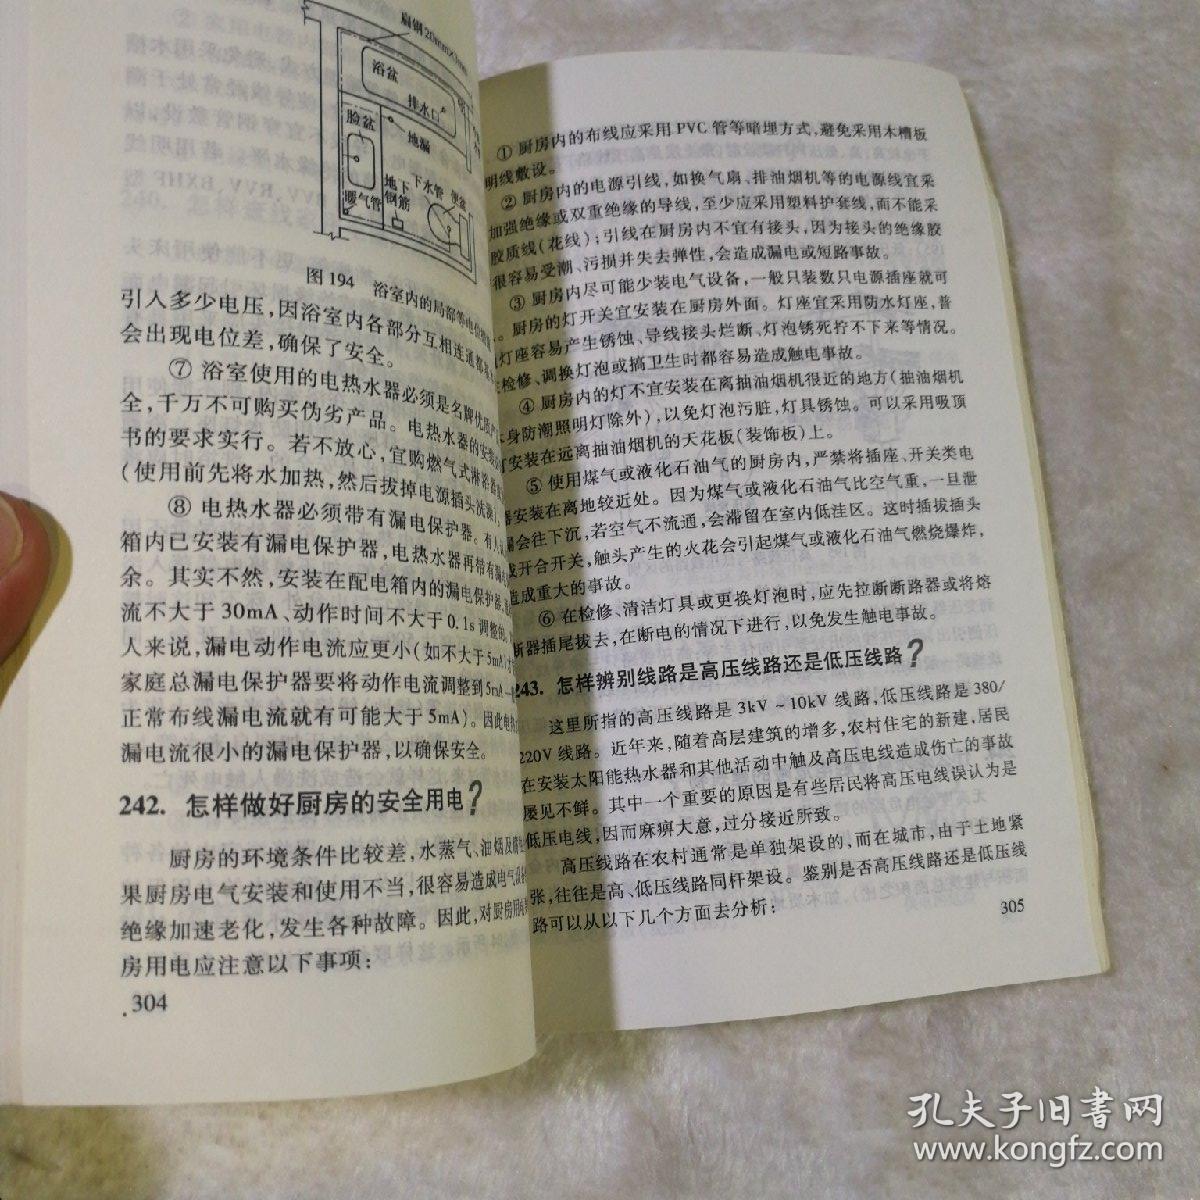 扁钢20mm×
浴盆
排水口
脸盆
地漏
地下钢筋
下水管
便盆
暖气管
图 194 浴室内的局部等电位
引入多少电压，因浴室内各部分互相连通都
会出现电位差，确保了安全。
⑦ 浴室使用的电热水器必须是名牌优质产
全，千万不可购买伪劣产品。电热水器的安装
书的要求实行。若不放心，宜购燃气式淋浴器
(使用前先将水加热，然后拔掉电源插头洗澡)
⑧ 电热水器必须带有漏电保护器。有人
箱内已安装有漏电保护器，电热水器再带有漏
余。其实不然，安装在配电箱内的漏电保护器，
流不大于30mA、动作时间不大于0.1s调整的
人来说，漏电动作电流应更小(如不大于5mA)
家庭总漏电保护器要将动作电流调整到5mA
正常布线漏电流就有可能大于5mA)。因此电热
漏电流很小的漏电保护器，以确保安全。
242. 怎样做好厨房的安全用电?
厨房的环境条件比较差，水蒸气、油烟及
果厨房电气安装和使用不当，很容易造成电气
绝缘加速老化，发生各种故障。因此，对厨房用
房用电应注意以下事项：
304
① 厨房内的布线应采用PVC管等暗埋方式，避免采用木槽板
明线敷设。
② 厨房内的电源引线，如换气扇、排油烟机等的电源线宜采
加强绝缘或双重绝缘的导线，至少应采用塑料护套线，而不能采
胶质线(花线)；引线在厨房内不宜有接头，因为接头的绝缘胶
很容易受潮、污损并失去弹性，会造成漏电或短路事故。
③ 厨房内尽可能少装电气设备，一般只装数只电源插座就可
。厨房的灯开关宜安装在厨房外面。灯座宜采用防水灯座，普
灯座容易产生锈蚀、导线接头烂断、灯泡锈死拧不下来等情况。
检修、调换灯泡或搞卫生时都容易造成触电事故。
④ 厨房内的灯不宜安装在离抽油烟机很近的地方(抽油烟机
身防潮照明灯除外)，以免灯泡污脏，灯具锈蚀。可以采用吸顶
安装在远离抽油烟机的天花板(装饰板)上。
⑤ 使用煤气或液化石油气的厨房内，严禁将插座、开关类电
器安装在离地较近处。因为煤气或液化石油气比空气重，一旦泄
漏会往下沉，若空气不流通，会滞留在室内低洼区。这时插拔插头
或开合开关，触头产生的火花会引起煤气或液化石油气燃烧爆炸，
造成重大的事故。
⑥ 在检修、清洁灯具或更换灯泡时，应先拉断断路器或将熔
断器插尾拔去，在断电的情况下进行，以免发生触电事故。
243. 怎样辨别线路是高压线路还是低压线路?
这里所指的高压线路是3kV～10kV线路，低压线路是380/
220V线路。近年来，随着高层建筑的增多，农村住宅的新建，居民
在安装太阳能热水器和其他活动中触及高压电线造成伤亡的事故
屡见不鲜。其中一个重要的原因是有些居民将高压电线误认为是
低压电线，因而麻痹大意，过分接近所致。
高压线路在农村通常是单独架设的，而在城市，由于土地紧
张，往往是高、低压线路同杆架设。鉴别是否高压线路还是低压线
路可以从以下几个方面去分析：
305
孔夫子旧书网
www.kongfz.com